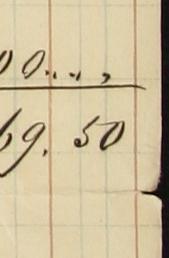 00...,
69. 50